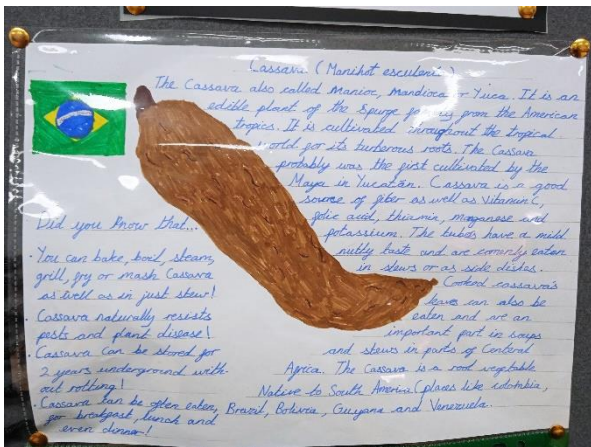 Cassava (Manihot esculent)
The Cassava also called Manioc, Mandioca or Yuca. It is an
edible plant of the Spurge family from the American
tropics. It is cultivated throughout the tropical
world for its tuberous roots. The Cassava
probably was the first cultivated by the
Maya in Yucatán. Cassava is a good
source of fiber as well as Vitamin C,
folic acid, thiamin, manganese and
potassium. The tubas have a mild
nutty taste and are eaten
in stews or as side dishes.
Cooked cassava's
leaves can also be
eaten and are an
important part in soups
and stews in parts of Central
Africa. The Cassava is a root vegetable
Native to South America (places like
Brazil, Bolivia, Guyana and Venezuela.
Did you know that...
· You can bake, boil, steam,
grill, fry or mash Cassava
as well as in just stew!
· Cassava naturally resists
pests and plant disease!
· Cassava can be stored for
2 years underground with-
out rotting!
· Cassava can be often eaten,
for breakfast, lunch and
even dinner!